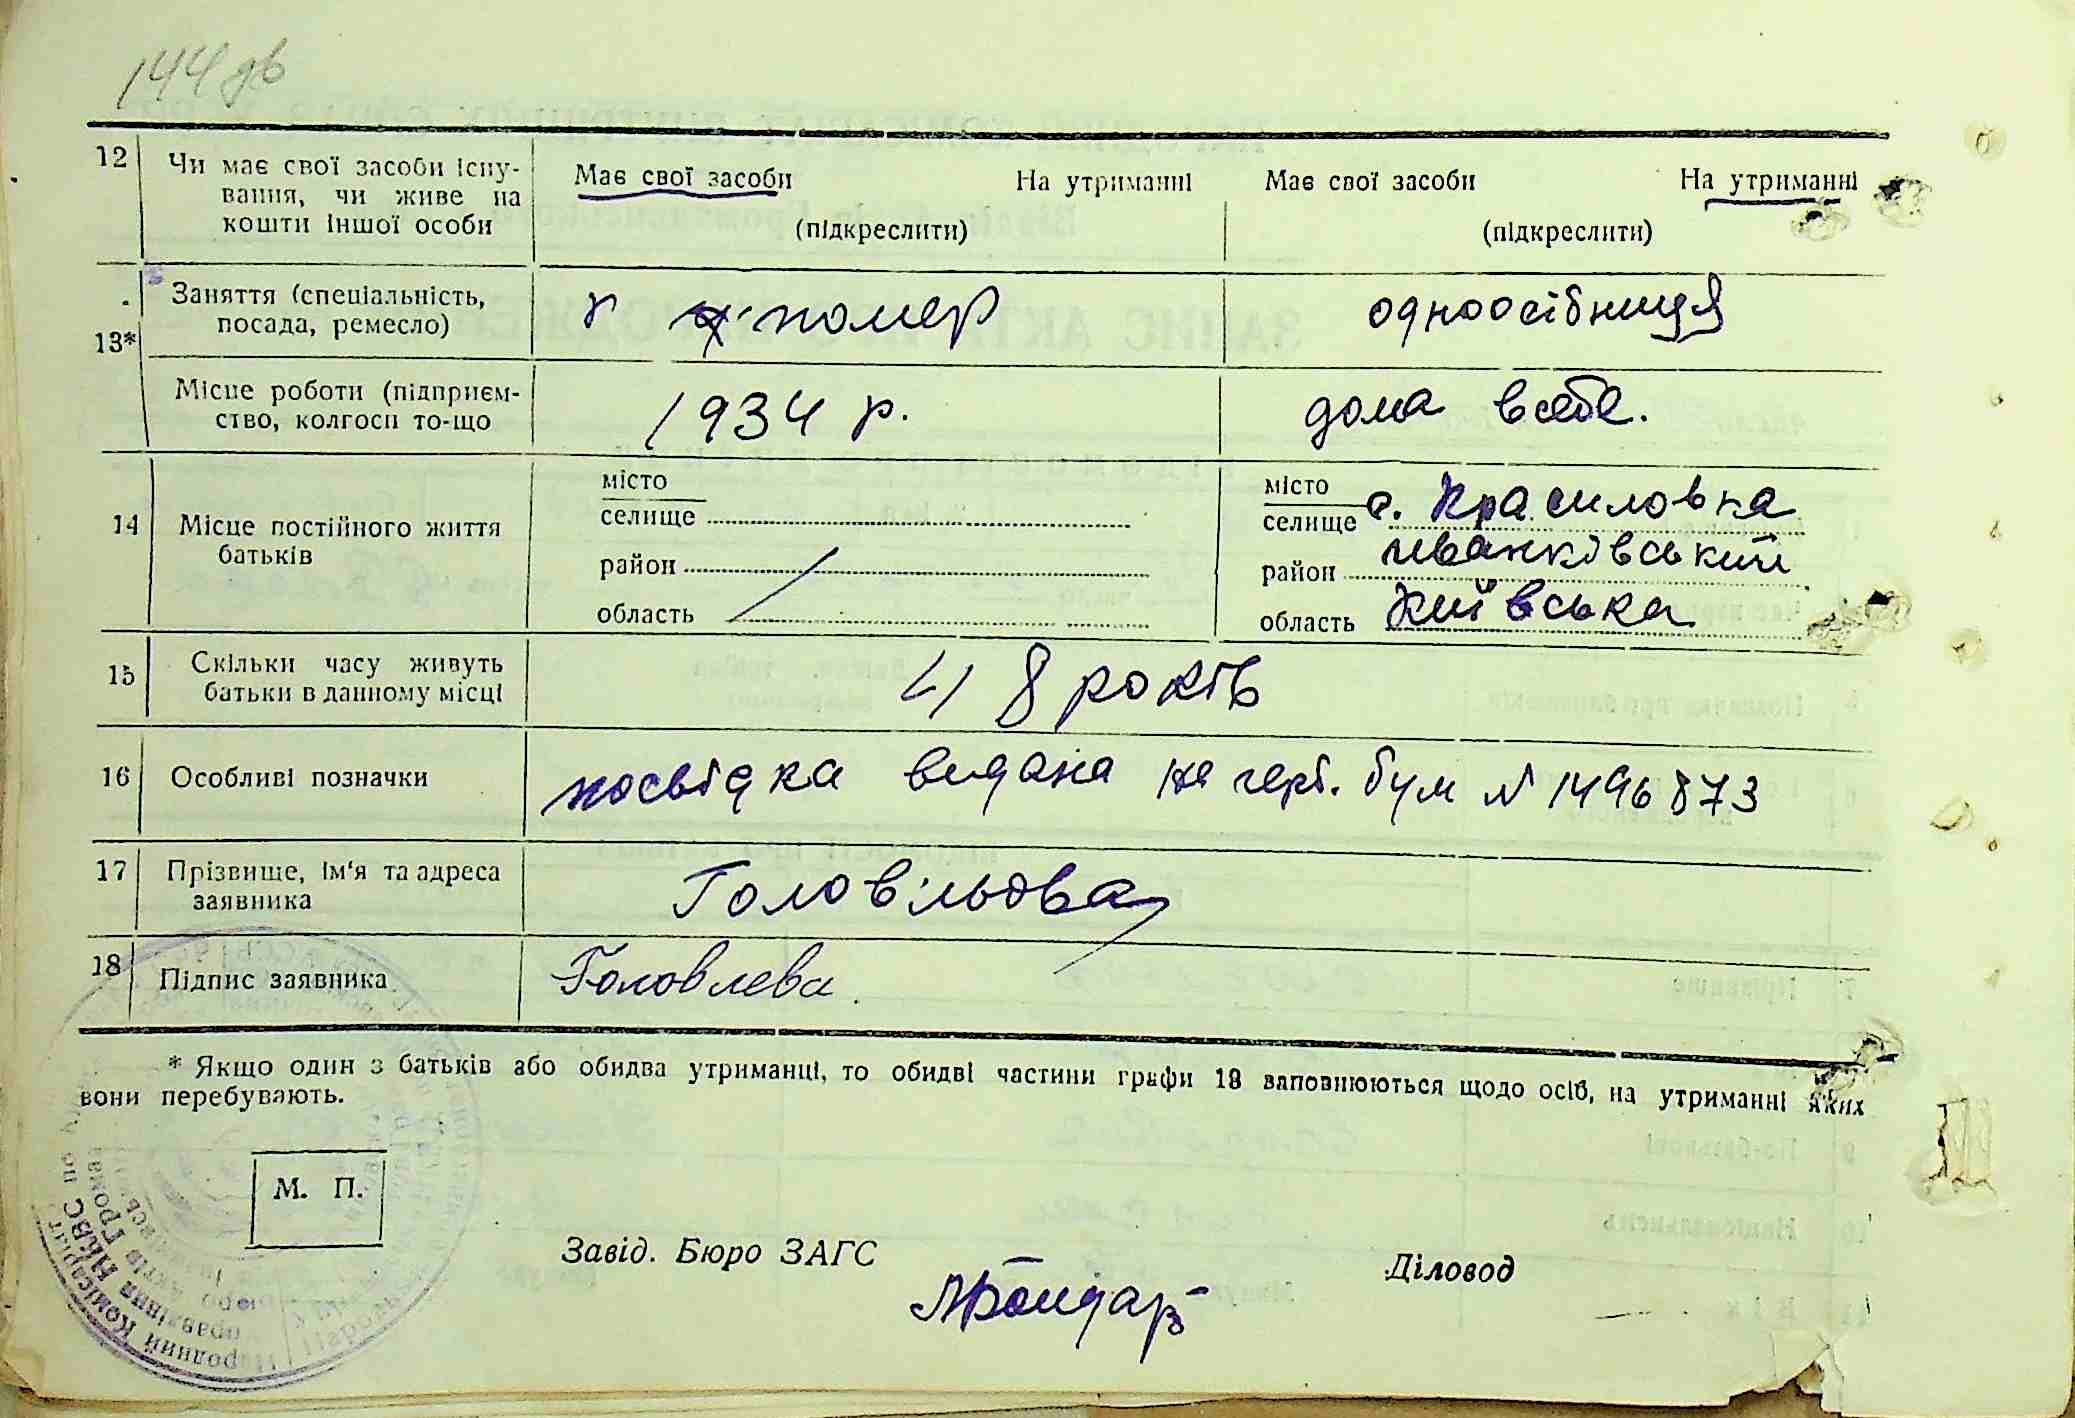 144 дв
12 Чи має свої засоби існу- Має свої засоби На утриманні Має свої засоби На утриманні
вання, чи живе на
кошти іншої особи (підкреслити) (підкреслити)
13* Заняття (спеціальність, помер одноосібниця
посада, ремесло)
Місце роботи (підприєм- 1934 р. дома в себе.
ство, колгосп то-що
14 Місце постійного життя місто місто
батьків селище селище с. Красиловка
район район Иванківський
область область Київська
15 Скільки часу живуть 8 років
батьки в данному місці
16 Особливі позначки посвідка видана на герб. бум № 1496873
17 Прізвище, ім'я та адреса Головільова
заявника
18 Підпис заявника Головлева.
* Якщо один з батьків або обидва утриманці, то обидві частини графи 13 заповнюються щодо осіб, на утриманні яких
вони перебувають.
М. П.
Завід. Бюро ЗАГС Діловод
Бондар